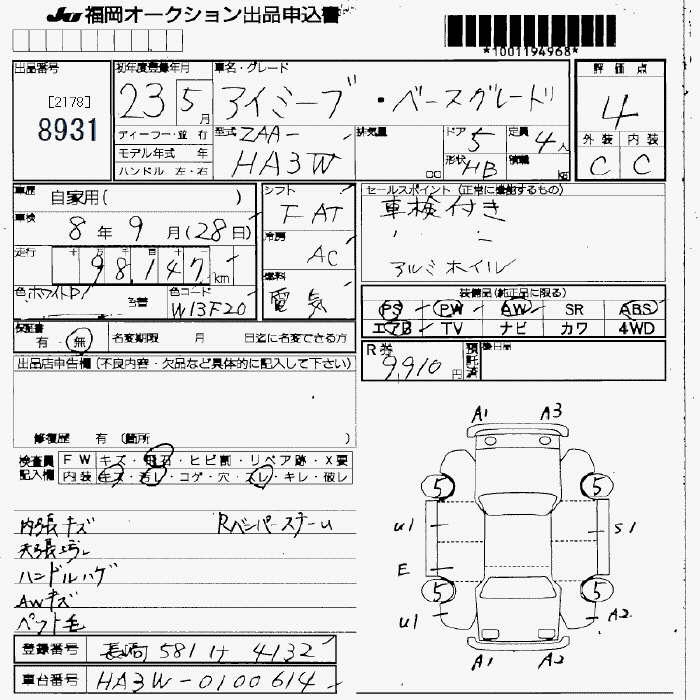 JU 福岡オークション出品申込書
*1001194968*
出品番号
[2178]
8931
初年度登録年月
23 5月
車名・グレード
アイミーブ・ベースグレード
評価点
4
外装 内装
C C
ディーラー・並行
モデル年式 年
ハンドル 左・右
型式 ZAA-
HA3W
排気量
cc
ドア 5
形状 HB
定員 4人
積載 kg
車歴 自家用( )
車検 8年 9月(28日)
走行 98,147km
色 ホワイトP
色コード W13F20
シフト FAT
冷房 AC
燃料 電気
セールスポイント(正常に機能するもの)
車検付き
アルミホイル
装備品(純正品に限る)
PS PW AW SR ABS
エアB TV ナビ カワ 4WD
保証書 有・無
名変期限 月 日迄に名変できる方
R券 9,910円
預託済
出品店申告欄(不良内容・欠品など具体的に記入して下さい)
修復歴 有(箇所 )
検査員記入欄
FW キズ・飛石・ヒビ割・リペア跡・X要
内装 キズ・汚レ・コゲ・穴・スレ・キレ・破レ
内張キズ Rバンパースナーム
天張汚レ
ハンドルハゲ
AWキズ
ペット毛
登録番号 長崎 581 け 4132
車台番号 HA3W-0100614
A1 A3
5 5
U1 S1
E
5 5
U1 A2
A1 A2